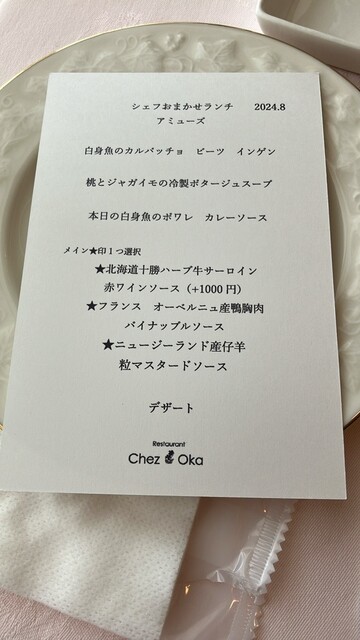 シェフおまかせランチ 2024.8
アミューズ
白身魚のカルパッチョ ビーツ インゲン
桃とジャガイモの冷製ポタージュスープ
本日の白身魚のポワレ カレーソース
メイン★印1つ選択
★北海道十勝ハーブ牛サーロイン
赤ワインソース（+1000円）
★フランス オーベルニュ産鴨胸肉
パイナップルソース
★ニュージーランド産仔羊
粒マスタードソース
デザート
Restaurant
Chez Oka